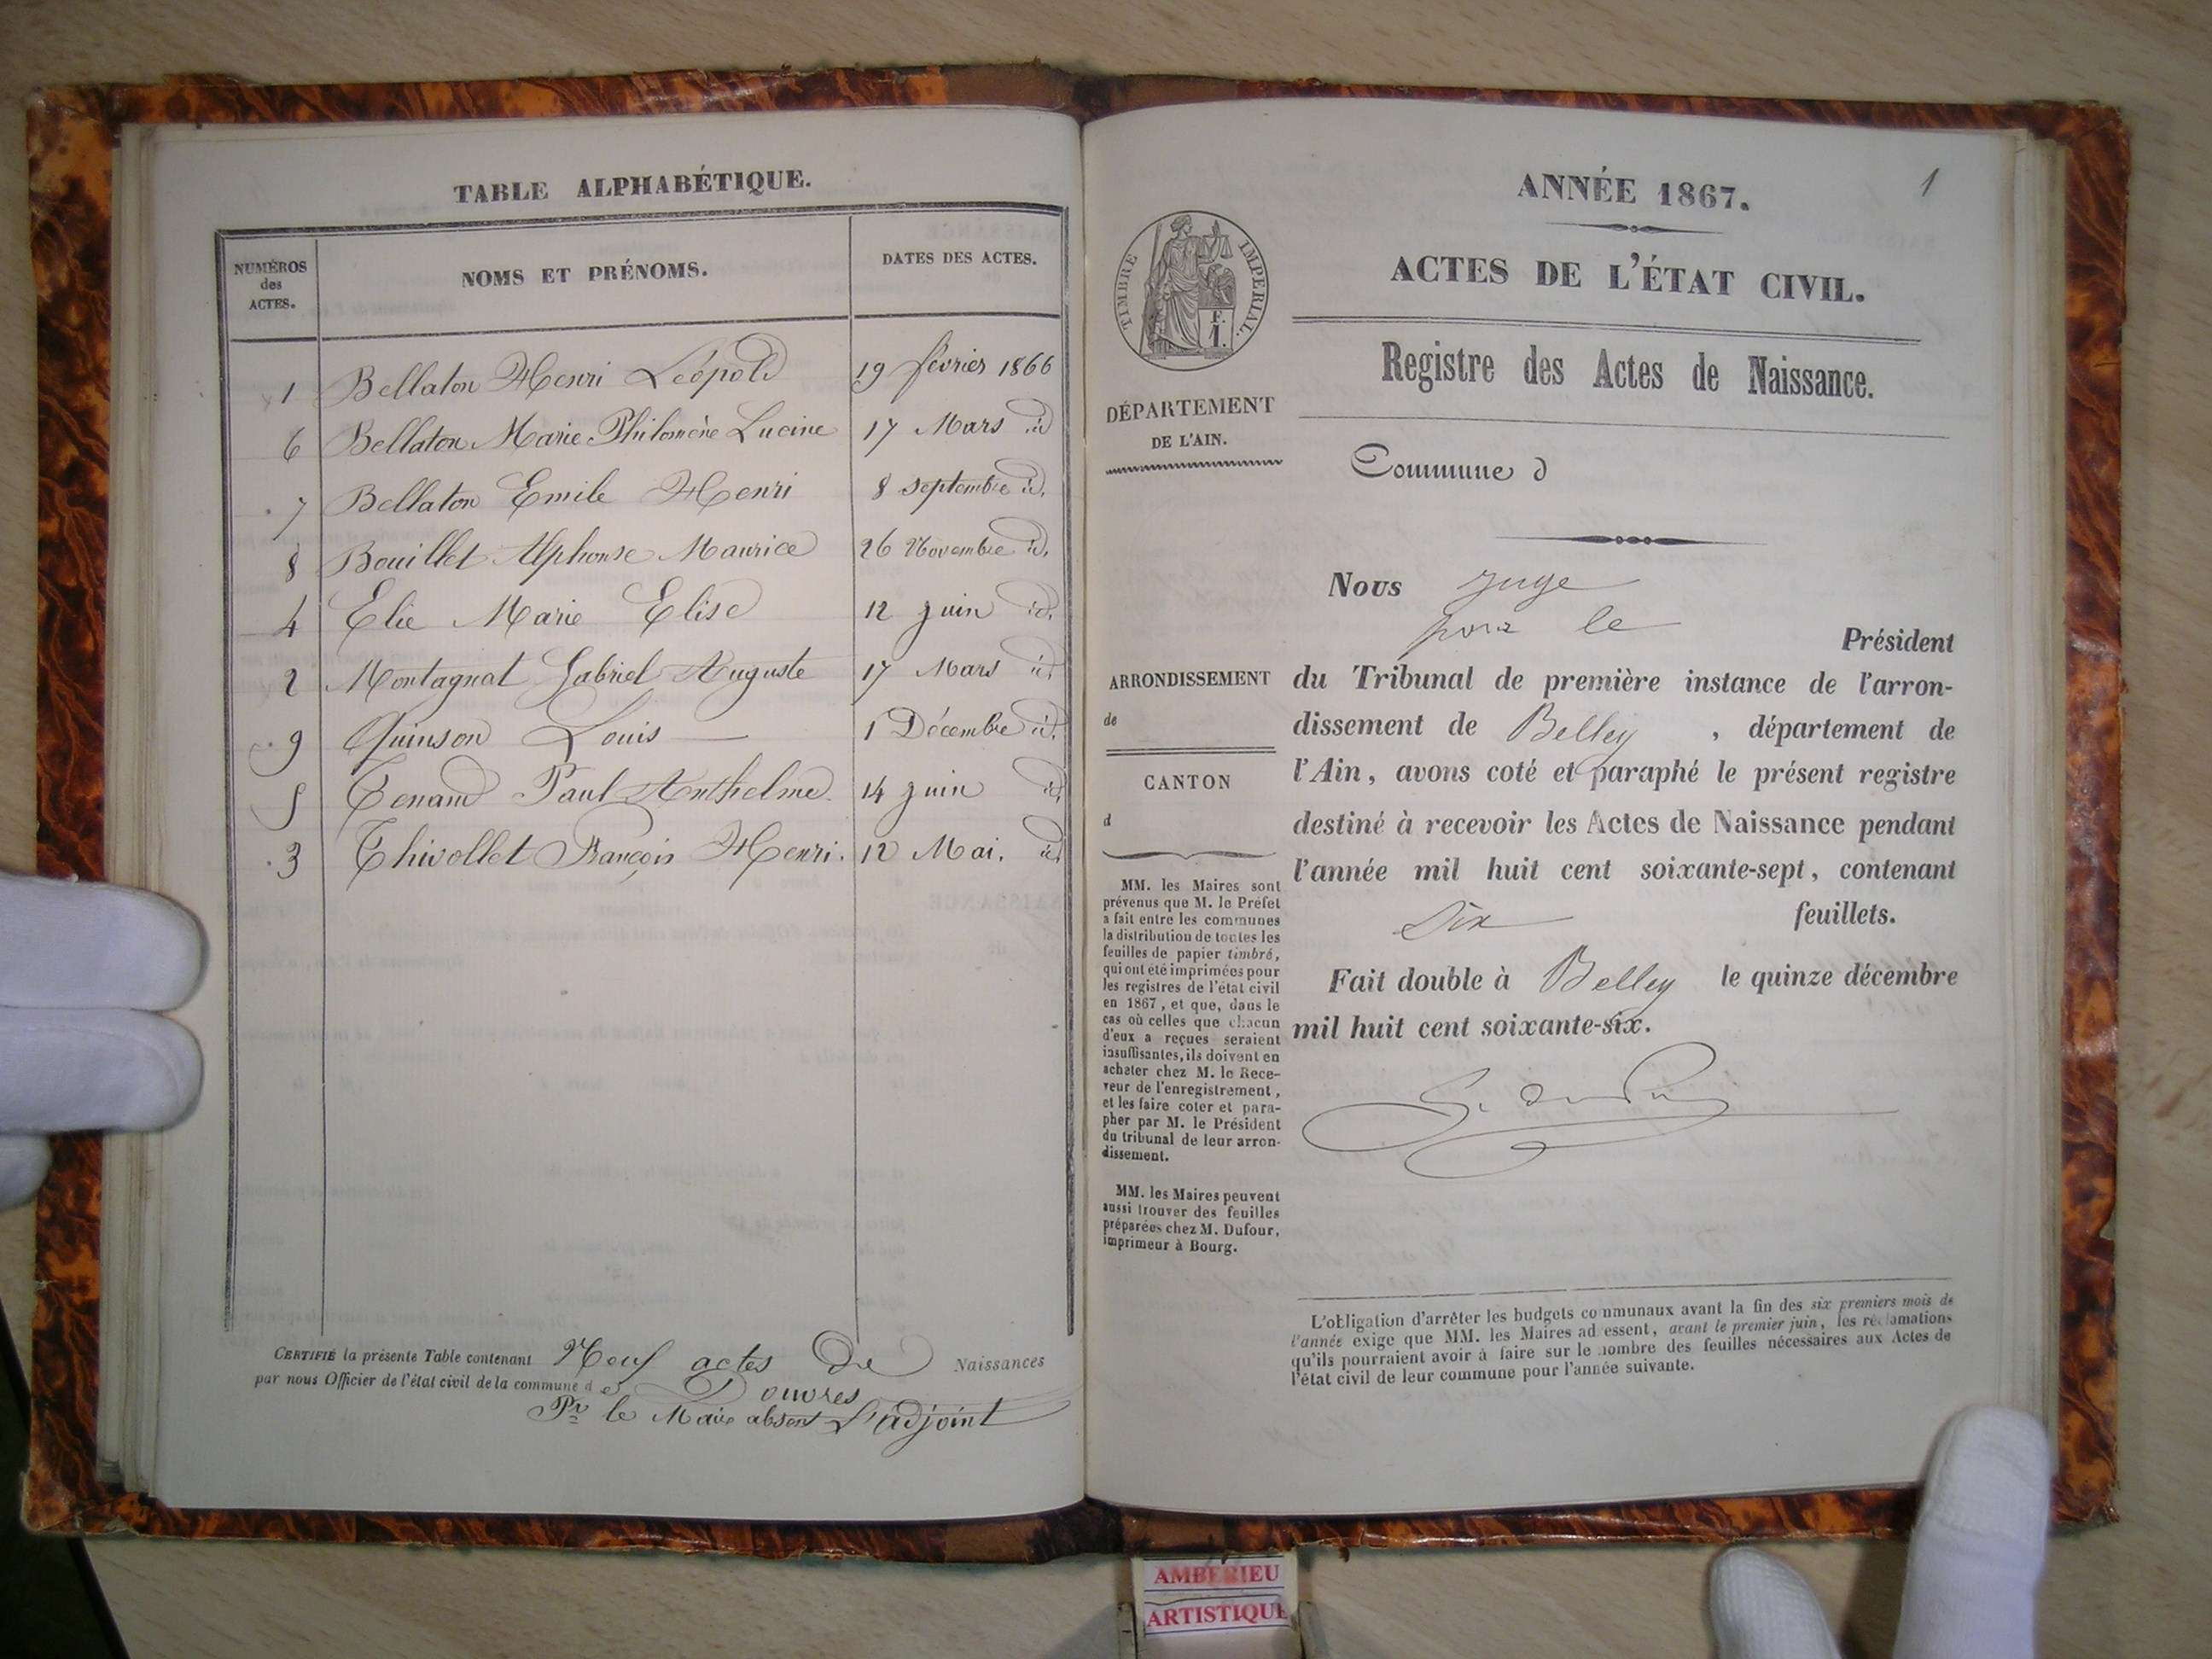 TABLE ALPHABÉTIQUE.
NUMÉROS des ACTES.
NOMS ET PRÉNOMS.
DATES DES ACTES.
1 Bellaton Henri Léopold 19 février 1866
6 Bellaton Marie Philomène Lucine 17 Mars id
7 Bellaton Emile Henri 8 septembre id.
8 Bouillet Alphonse Maurice 26 Novembre id.
4 Elie Marie Elise 12 juin id.
2 Montagnat Gabriel Auguste 17 Mars id.
9 Quinson Louis — 1 Décembre id.
5 Tenand Paul Anthelme. 14 juin id.
3 Thivollet François Henri. 12 Mai. id.
CERTIFIÉ la présente Table contenant Neuf actes de Naissances
par nous Officier de l'état civil de la commune de Douvres
Pr le Maire absent L'adjoint
1
ANNÉE 1867.
ACTES DE L'ÉTAT CIVIL.
TIMBRE IMPERIAL.
F.
1.
Registre des Actes de Naissance.
DÉPARTEMENT
DE L'AIN.
Commune d
Nous juge
pour le
Président
ARRONDISSEMENT
de
CANTON
d
du Tribunal de première instance de l'arron-
dissement de Belley, département de
l'Ain, avons coté et paraphé le présent registre
destiné à recevoir les Actes de Naissance pendant
l'année mil huit cent soixante-sept, contenant
six feuillets.
Fait double à Belley le quinze décembre
mil huit cent soixante-six.
MM. les Maires sont
prévenus que M. le Préfet
a fait entre les communes
la distribution de toutes les
feuilles de papier timbré,
qui ont été imprimées pour
les registres de l'état civil
en 1867, et que, dans le
cas où celles que chacun
d'eux a reçues seraient
insuffisantes, ils doivent en
acheter chez M. le Rece-
veur de l'enregistrement,
et les faire coter et para-
pher par M. le Président
du tribunal de leur arron-
dissement.
MM. les Maires peuvent
aussi trouver des feuilles
préparées chez M. Dufour,
imprimeur à Bourg.
L'obligation d'arrêter les budgets communaux avant la fin des six premiers mois de
l'année exige que MM. les Maires adressent, avant le premier juin, les réclamations
qu'ils pourraient avoir à faire sur le nombre des feuilles nécessaires aux Actes de
l'état civil de leur commune pour l'année suivante.
AMBERIEU
ARTISTIQUE